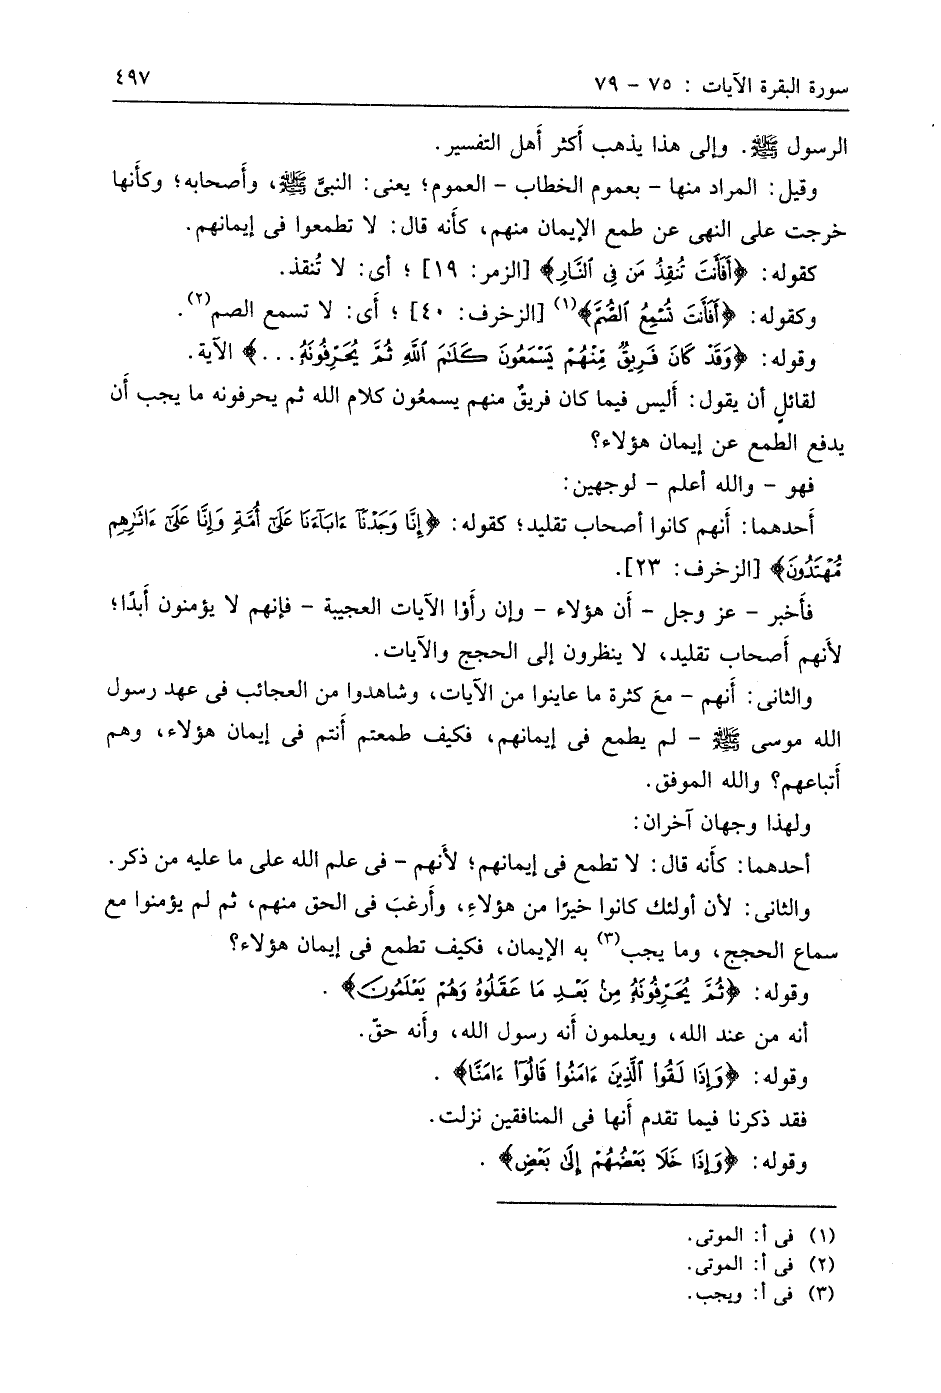 سورة البقرة الآيات : ٧٥ - ٧٩
٤٩٧
الرسول ﷺ. وإلى هذا يذهب أكثر أهل التفسير.
وقيل: المراد منها - بعموم الخطاب - العموم؛ يعنى: النبىَّ ﷺ، وأصحابه؛ وكأنها
خرجت على النهى عن طمع الإيمان منهم، كأنه قال: لا تطمعوا فى إيمانهم.
كقوله: ﴿أَفَأَنتَ تُنقِذُ مَن فِى ٱلنَّارِ﴾ [الزمر: ١٩] ؛ أى: لا تُنقذ.
وكقوله: ﴿أَفَأَنتَ تُسْمِعُ ٱلصُّمَّ﴾(١) [الزخرف: ٤٠] ؛ أى: لا تسمع الصم(٢).
وقوله: ﴿وَقَدْ كَانَ فَرِيقٌ مِّنْهُمْ يَسْمَعُونَ كَلَٰمَ ٱللَّهِ ثُمَّ يُحَرِّفُونَهُۥ...﴾ الآية.
لقائلٍ أن يقول: أليس فيما كان فريقٌ منهم يسمعُون كلام الله ثم يحرفونه ما يجب أن
يدفع الطمع عن إيمان هؤلاء؟
فهو - والله أعلم - لوجهين:
أحدهما: أنهم كانوا أصحاب تقليد؛ كقوله: ﴿إِنَّا وَجَدْنَآ ءَابَآءَنَا عَلَىٰٓ أُمَّةٍ وَإِنَّا عَلَىٰٓ ءَاثَٰرِهِم
مُّهْتَدُونَ﴾ [الزخرف: ٢٣].
فأخبر - عز وجل - أن هؤلاء - وإن رأوْا الآيات العجيبة - فإنهم لا يؤمنون أبدًا؛
لأنهم أصحاب تقليد، لا ينظرون إلى الحجج والآيات.
والثانى: أنهم - معَ كثرة ما عاينوا من الآيات، وشاهدوا من العجائب فى عهد رسول
الله موسى ﷺ - لم يطمع فى إيمانهم، فكيف طمعتم أنتم فى إيمان هؤلاء، وهم
أتباعهم؟ والله الموفق.
ولهذا وجهان آخران:
أحدهما: كأنه قال: لا تطمع فى إيمانهم؛ لأنهم - فى علم الله على ما عليه من ذكر.
والثانى: لأن أولئك كانوا خيرًا من هؤلاءِ، وأرغبَ فى الحق منهم، ثم لم يؤمنوا مع
سماع الحجج، وما يجب(٣) به الإيمان، فكيف تطمع فى إيمان هؤلاء؟
وقوله: ﴿ثُمَّ يُحَرِّفُونَهُۥ مِنۢ بَعْدِ مَا عَقَلُوهُ وَهُمْ يَعْلَمُونَ﴾ .
أنه من عند الله، ويعلمون أنه رسول الله، وأنه حقّ.
وقوله: ﴿وَإِذَا لَقُوا۟ ٱلَّذِينَ ءَامَنُوا۟ قَالُوٓا۟ ءَامَنَّا﴾ .
فقد ذكرنا فيما تقدم أنها فى المنافقين نزلت.
وقوله: ﴿وَإِذَا خَلَا بَعْضُهُمْ إِلَىٰ بَعْضٍ﴾ .
(١) فى أ: الموتى.
(٢) فى أ: الموتى.
(٣) فى أ: ويجب.